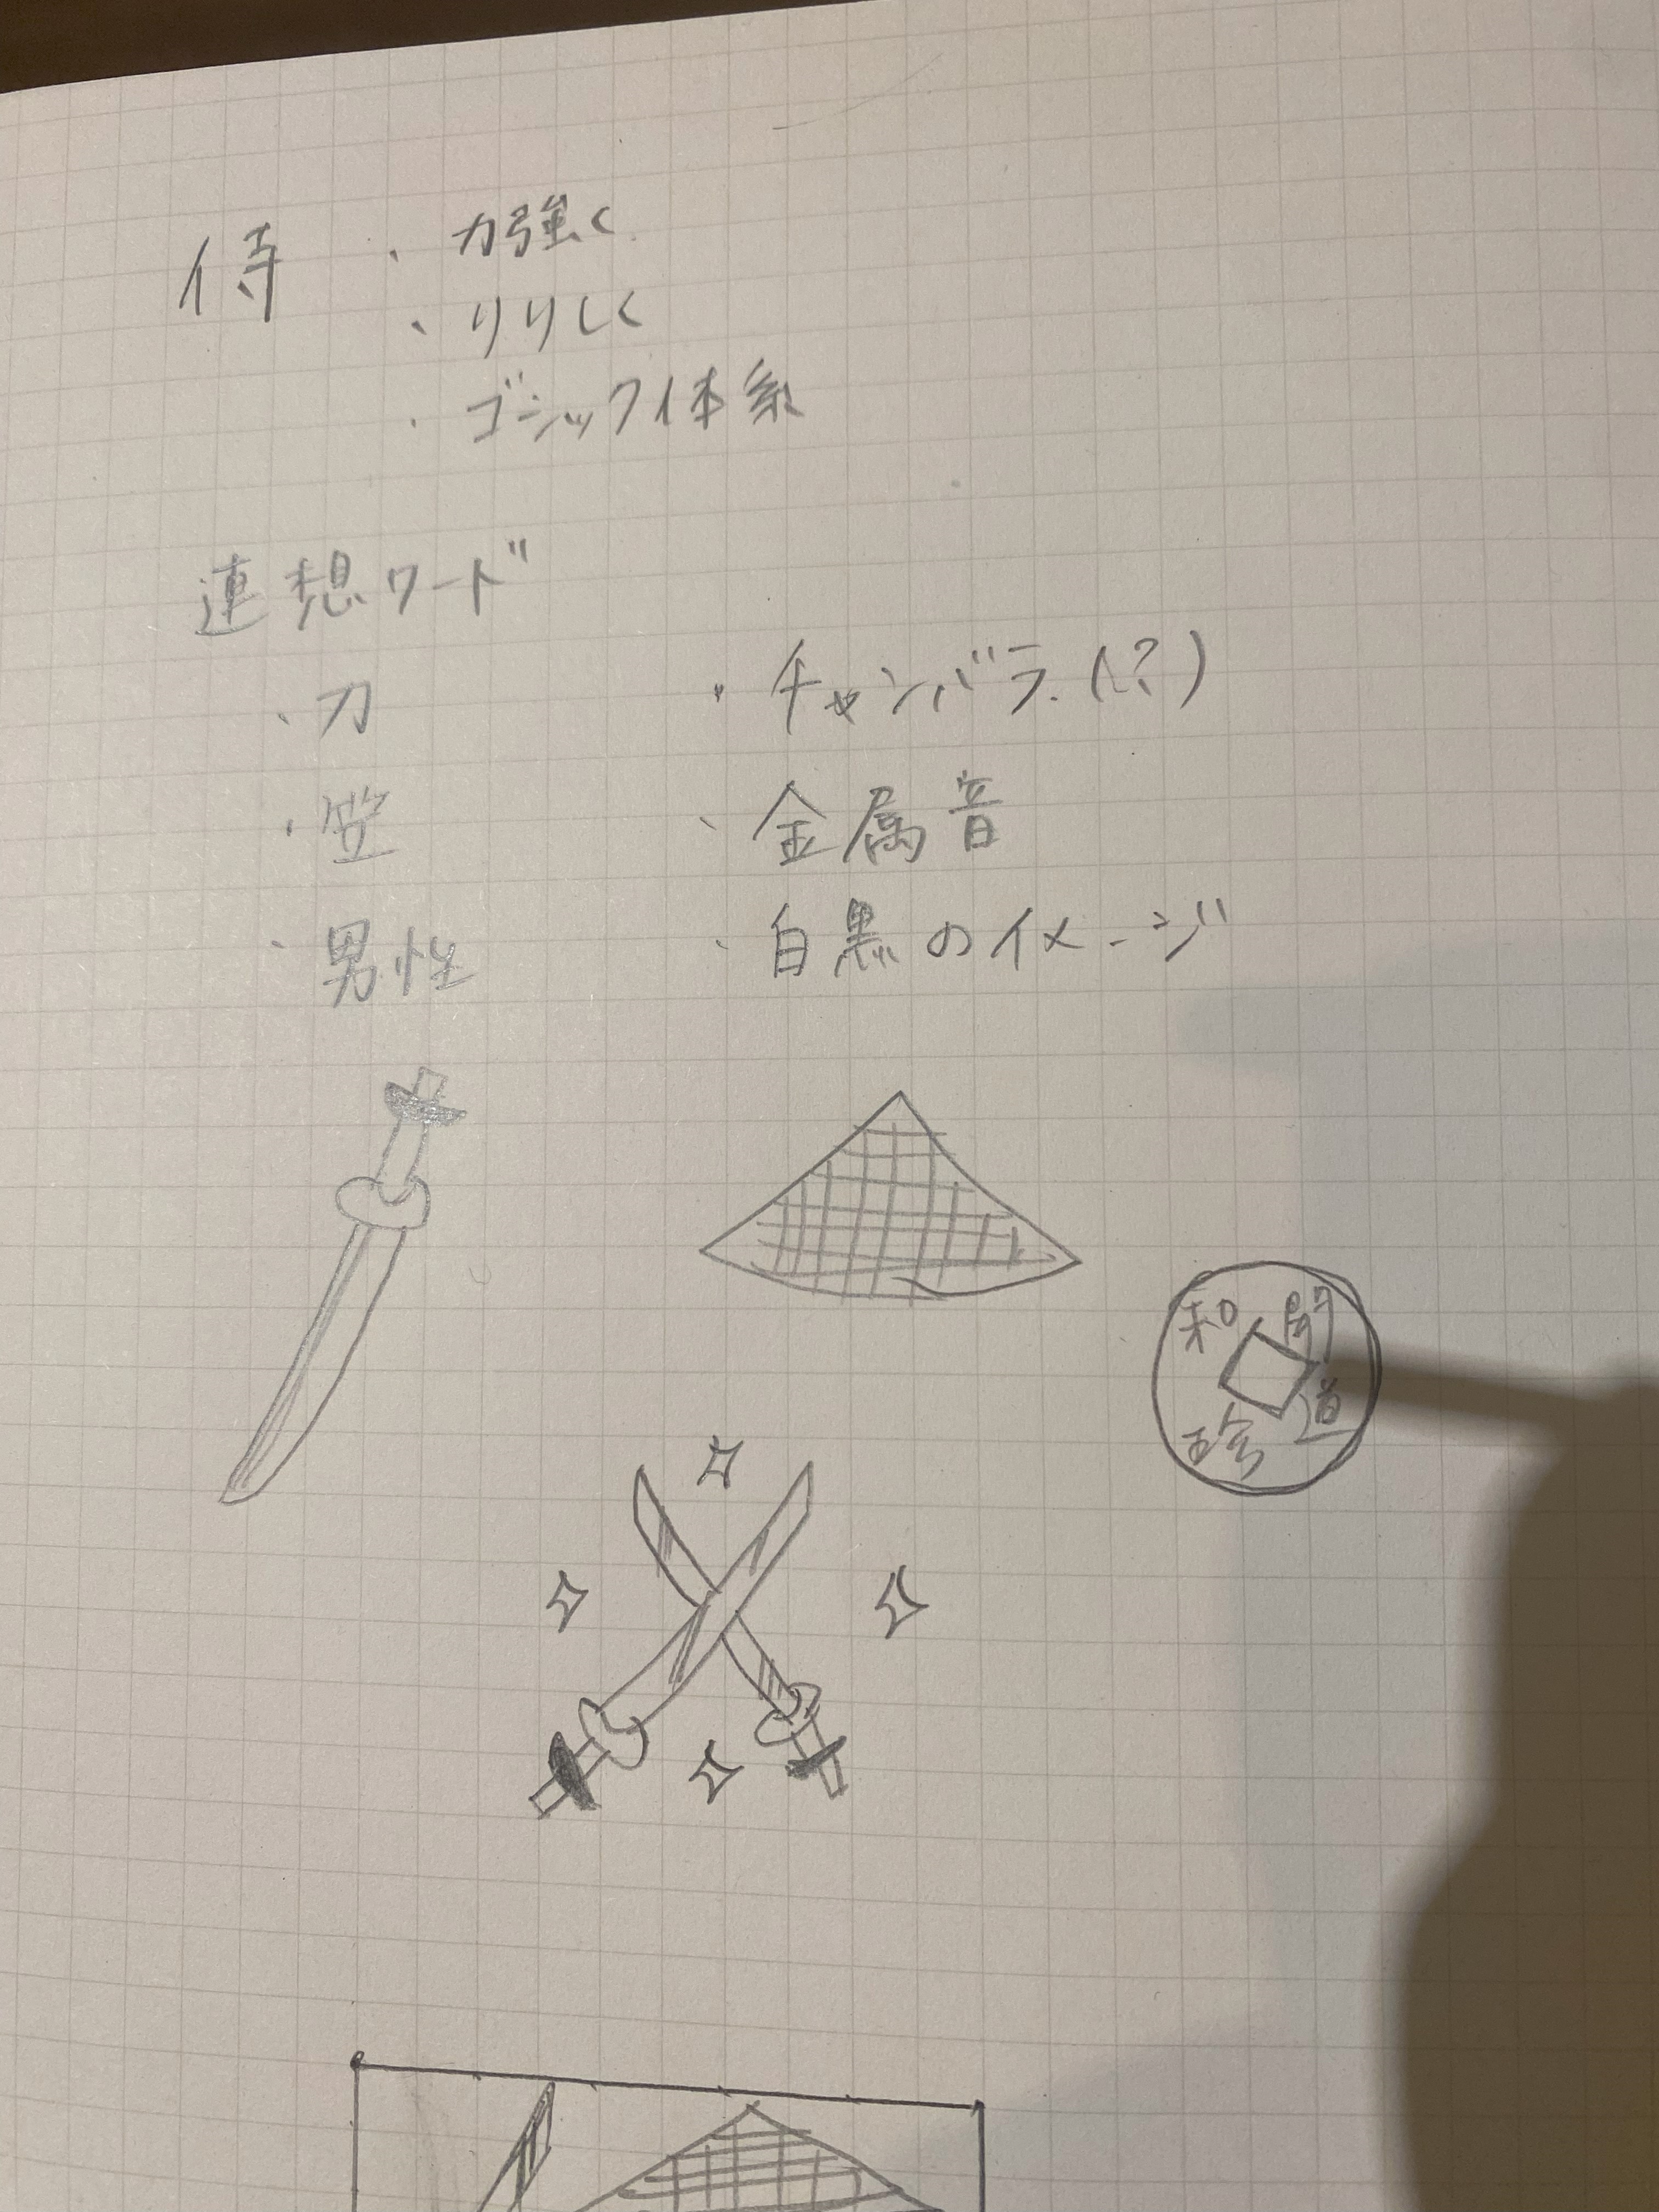 侍
・力強く
・りりしく
・ゴシック体系
連想ワード
・刀
・笠
・男性
・チャンバラ(!?)
・金属音
・白黒のイメージ
和開
珍道